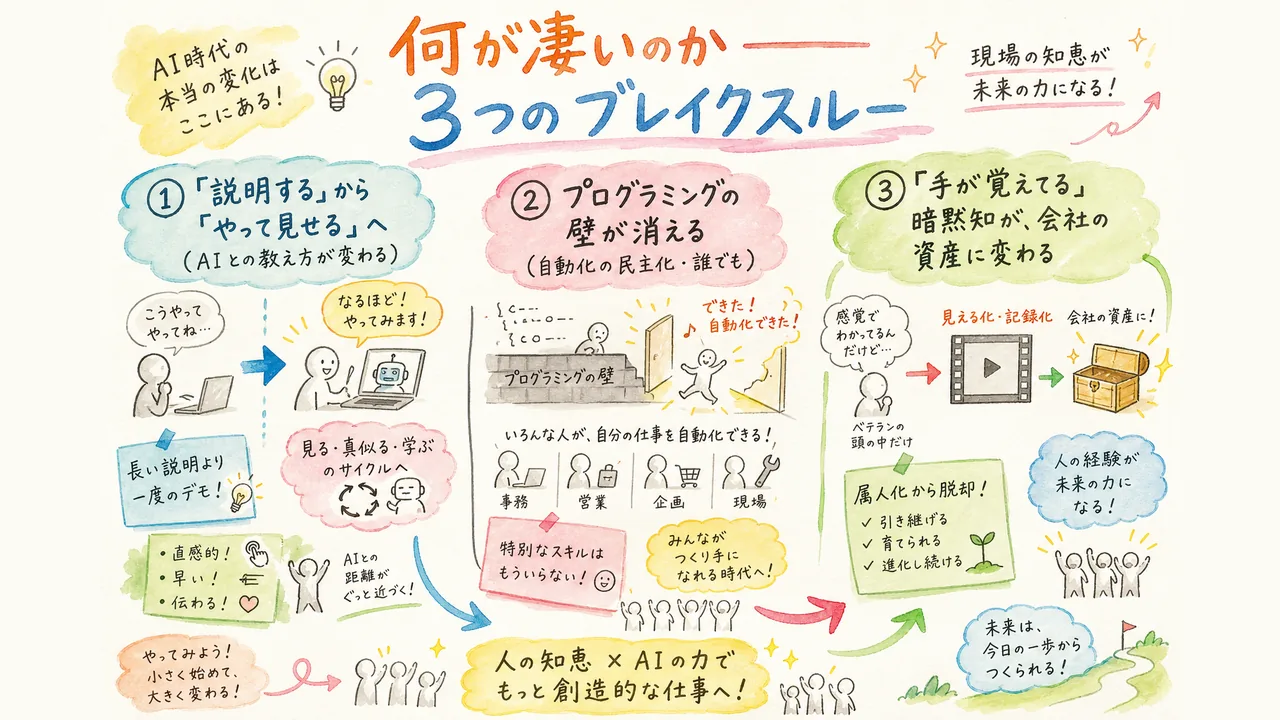 AI時代の
本当の変化は
ここにある！
何が凄いのか
3つのブレイクスルー
現場の知恵が
未来の力になる！
① 「説明する」から
「やって見せる」へ
(AIとの教え方が変わる)
こうやって
やってね…
なるほど！
やってみます！
長い説明より
一度のデモ！
見る・真似る・学ぶ
のサイクルへ
・直感的！
・早い！
・伝わる！
AIとの
距離が
ぐっと近づく！
やってみよう！
小さく始めて、
大きく変わる！
② プログラミングの
壁が消える
(自動化の民主化・誰でも)
プログラミングの壁
できた！
自動化できた！
いろんな人が、自分の仕事を自動化できる！
事務 営業 企画 現場
特別なスキルは
もういらない！
みんなが
つくり手に
なれる時代へ！
人の知恵 × AIの力で
もっと創造的な仕事へ！
③ 「手が覚えてる」
暗黙知が、会社の
資産に変わる
感覚で
わかってるん
だけど…
ベテランの
頭の中だけ
見える化・記録化
会社の資産に！
属人化から脱却！
✓ 引き継げる
✓ 育てられる
✓ 進化し続ける
人の経験が
未来の力に
なる！
未来は、
今日の一歩から
つくられる！